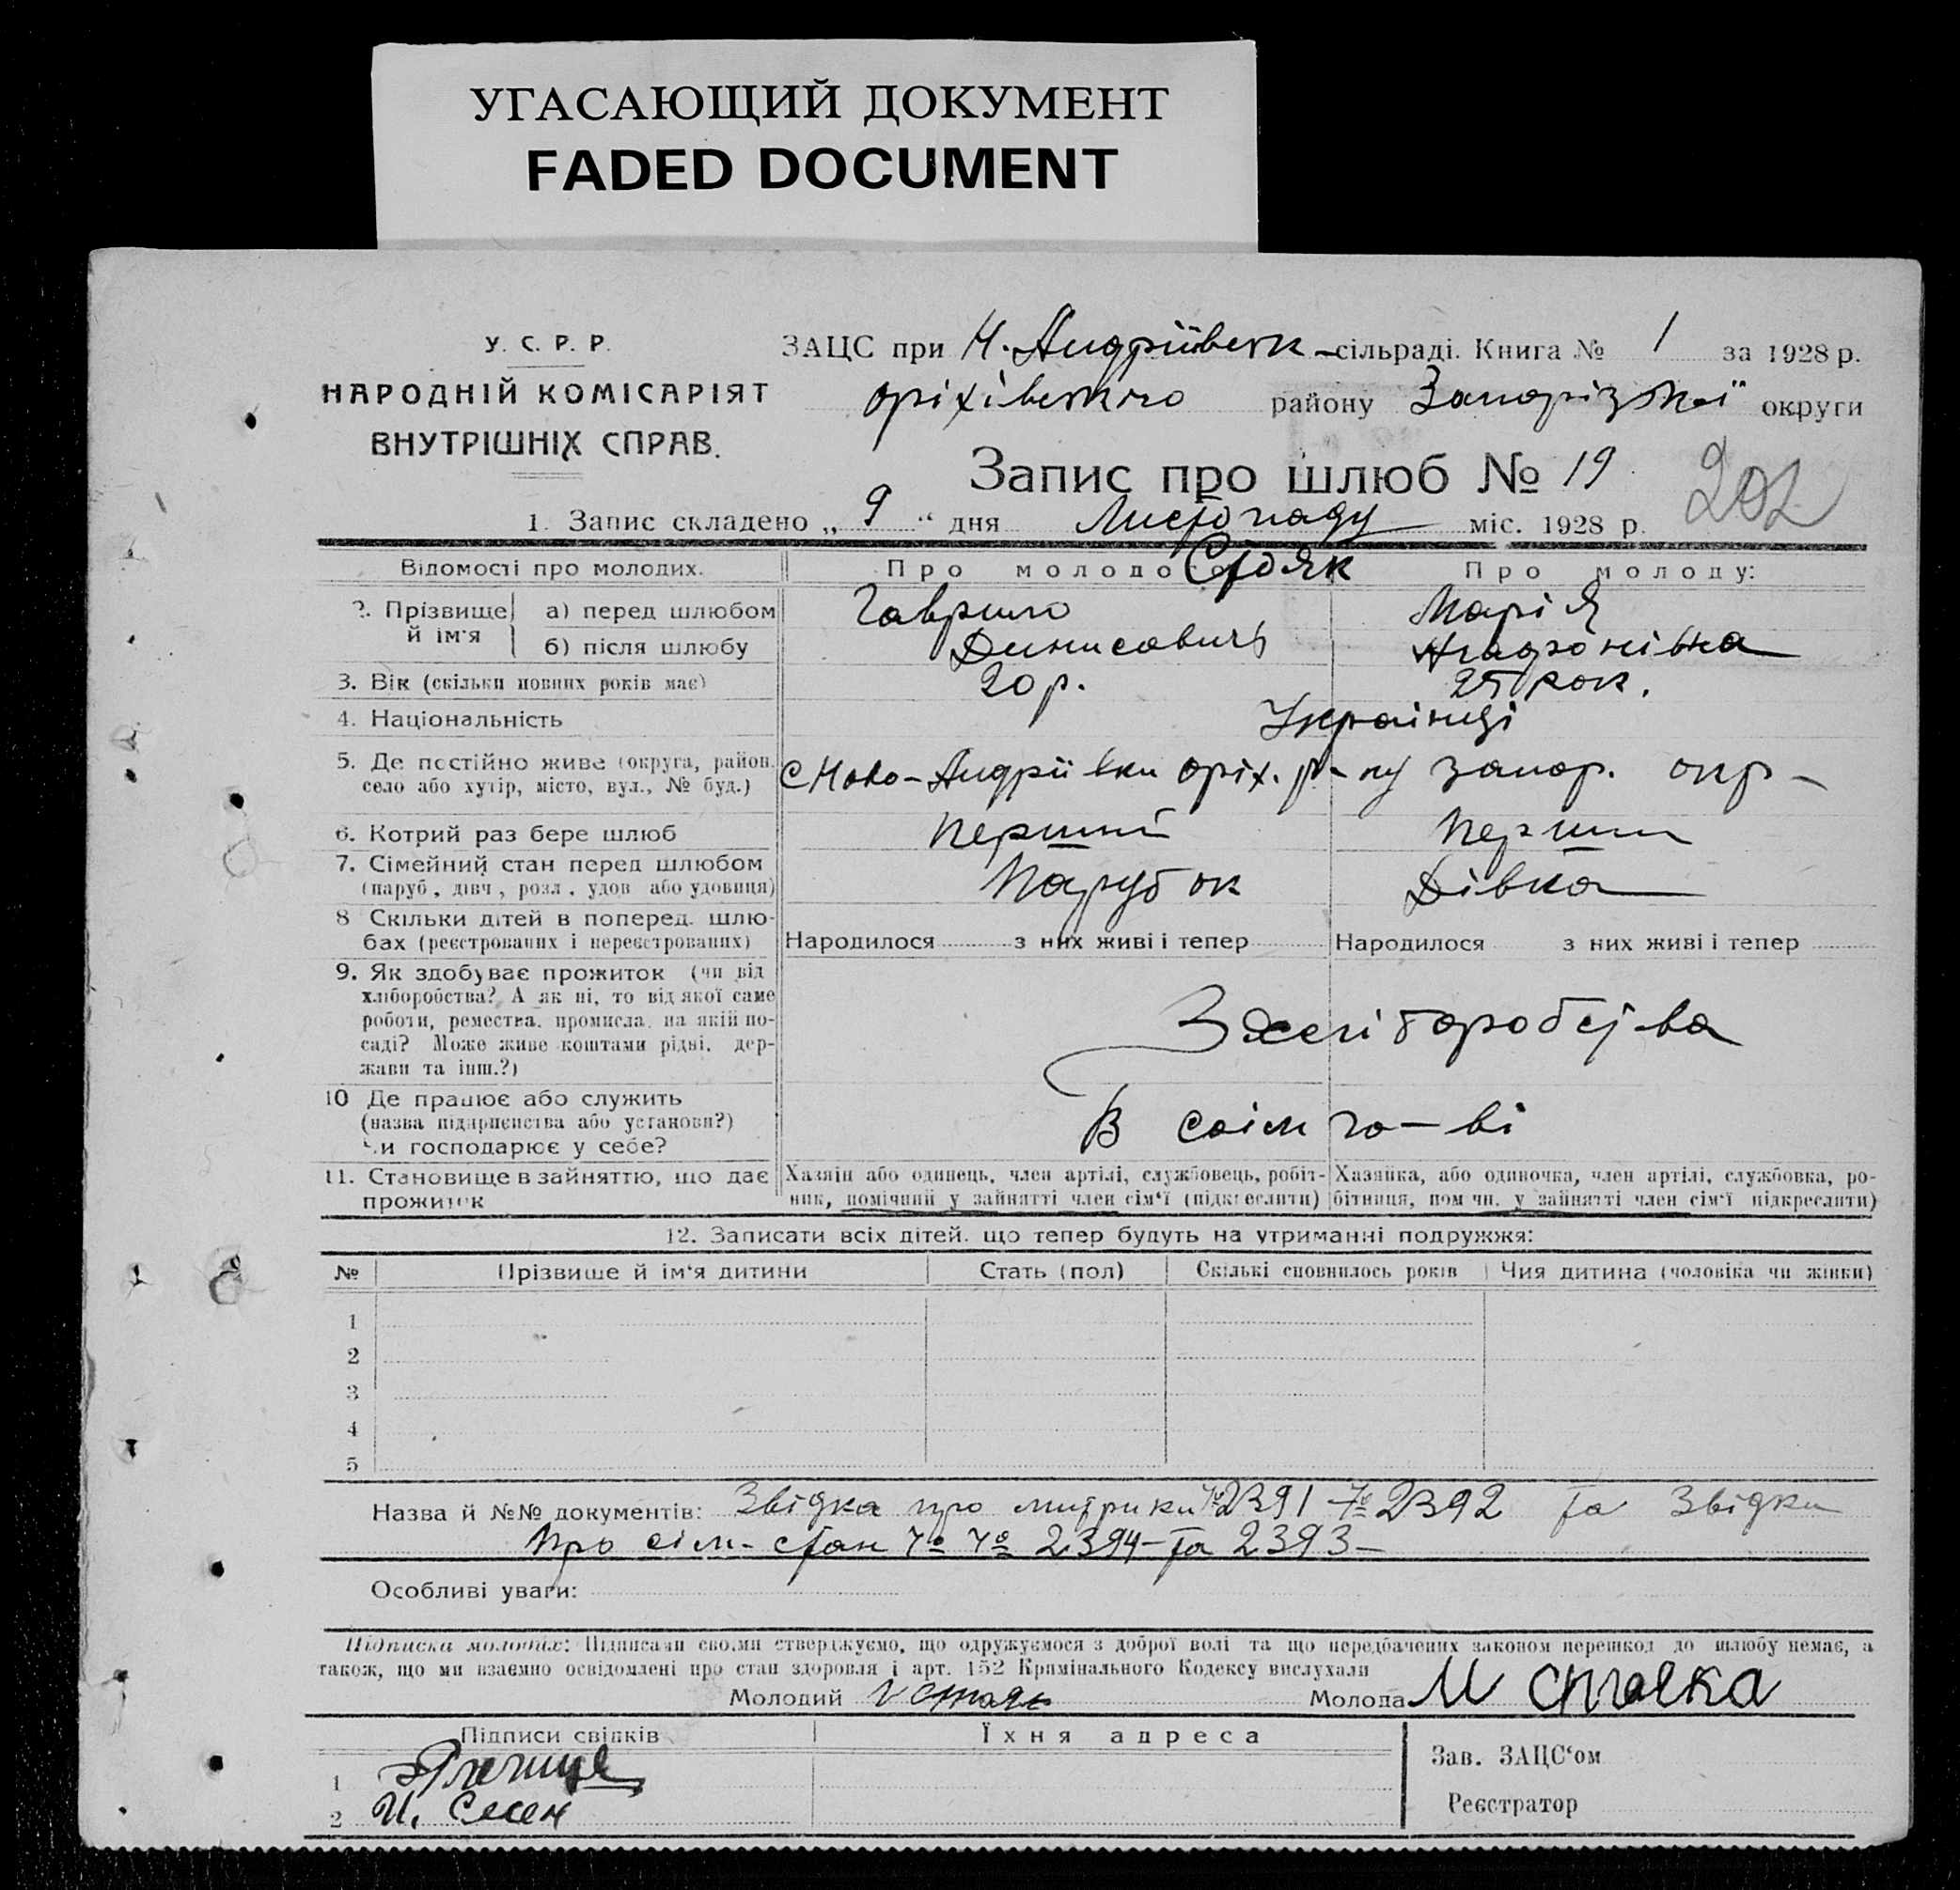 УГАСАЮЩИЙ ДОКУМЕНТ
FADED DOCUMENT
У. С. Р. Р.
НАРОДНІЙ КОМІСАРІЯТ
ВНУТРІШНІХ СПРАВ.
ЗАЦС при Н. Андріївськ - сільраді. Книга № 1 за 1928 р.
Оріхівського району Запорізької округи
Запис про шлюб № 19
202
1. Запис складено „ 9 " дня Листопаду міс. 1928 р.
Відомості про молодих. Про молодого Стояк Про молоду:
2. Прізвище й ім'я а) перед шлюбом Гаврило Марія
б) після шлюбу Денисович
3. Вік (скільки повних років має) 20 р. 25 рок.
4. Національність Українці
5. Де постійно живе (округа, район, село або хутір, місто, вул., № буд.) с Ново-Андріївки Оріх. р-ну Запор. окр-
6. Котрий раз бере шлюб Перший Перший
7. Сімейний стан перед шлюбом (паруб., дівч., розл., удов. або удовиця) Парубок Дівка
8 Скільки дітей в поперед. шлюбах (реєстрованих і нереєстрованих) Народилося з них живі і тепер Народилося з них живі і тепер
9. Як здобуває прожиток (чи від хліборобства? А як ні, то від якої саме роботи, ремества, промисла, на якій посаді? Може живе коштами рідні, держави та інш.?) З хліборобства
10 Де працює або служить (назва підприємства або установи?) Чи господарює у себе? В своїм го-ві
11. Становище в зайняттю, що дає прожиток Хазяїн або одинець, член артілі, службовець, робітник, помічний у зайнятті член сім'ї (підкреслити) Хазяйка, або одиночка, член артілі, службовка, робітниця, помічн. у зайнятті член сім'ї підкреслити)
12. Записати всіх дітей, що тепер будуть на утриманні подружжя:
№ Прізвише й ім'я дитини Стать (пол) Скількі сповнилось років Чия дитина (чоловіка чи жінки)
1
2
3
4
5
Назва й №№ документів: Звідка про митрики № 2391 № 2392 та Звідки
про сім- стан № № 2394- та 2393-
Особливі уваги:
Підписка молодих: Підписами своїми стверджуємо, що одружуємося з доброї волі та що передбачених законом перешкод до шлюбу немає, а
також, що ми взаємно освідомлені про стан здоровля і арт. 152 Кримінального Кодексу вислухали
Молодий Г Стояк Молода М Стоячка
Підписи свідків Їхня адреса
1
2 И.
Зав. ЗАЦС'ом
Реєстратор